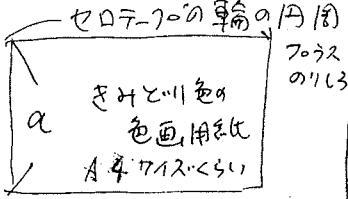 セロテープの輪の円周
プラス
のりしろ
a
きみどり色の
色画用紙
A4サイズくらい